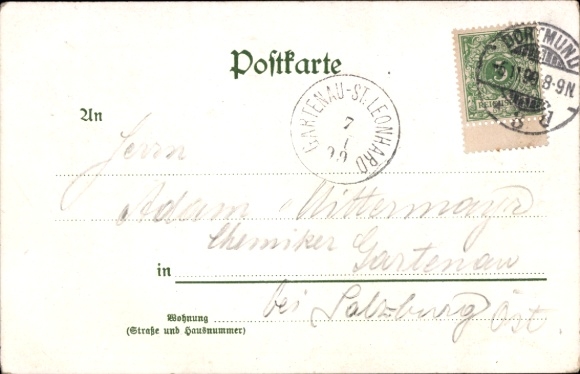 Postkarte
DORTMUND
99. 8-9N.
GARTENAU-ST. LEONHARD
7
An
Herrn
Adam Mittermayr
Chemiker
in Gartenau
bei Salzburg Öst.
Wohnung
(Straße und Hausnummer)